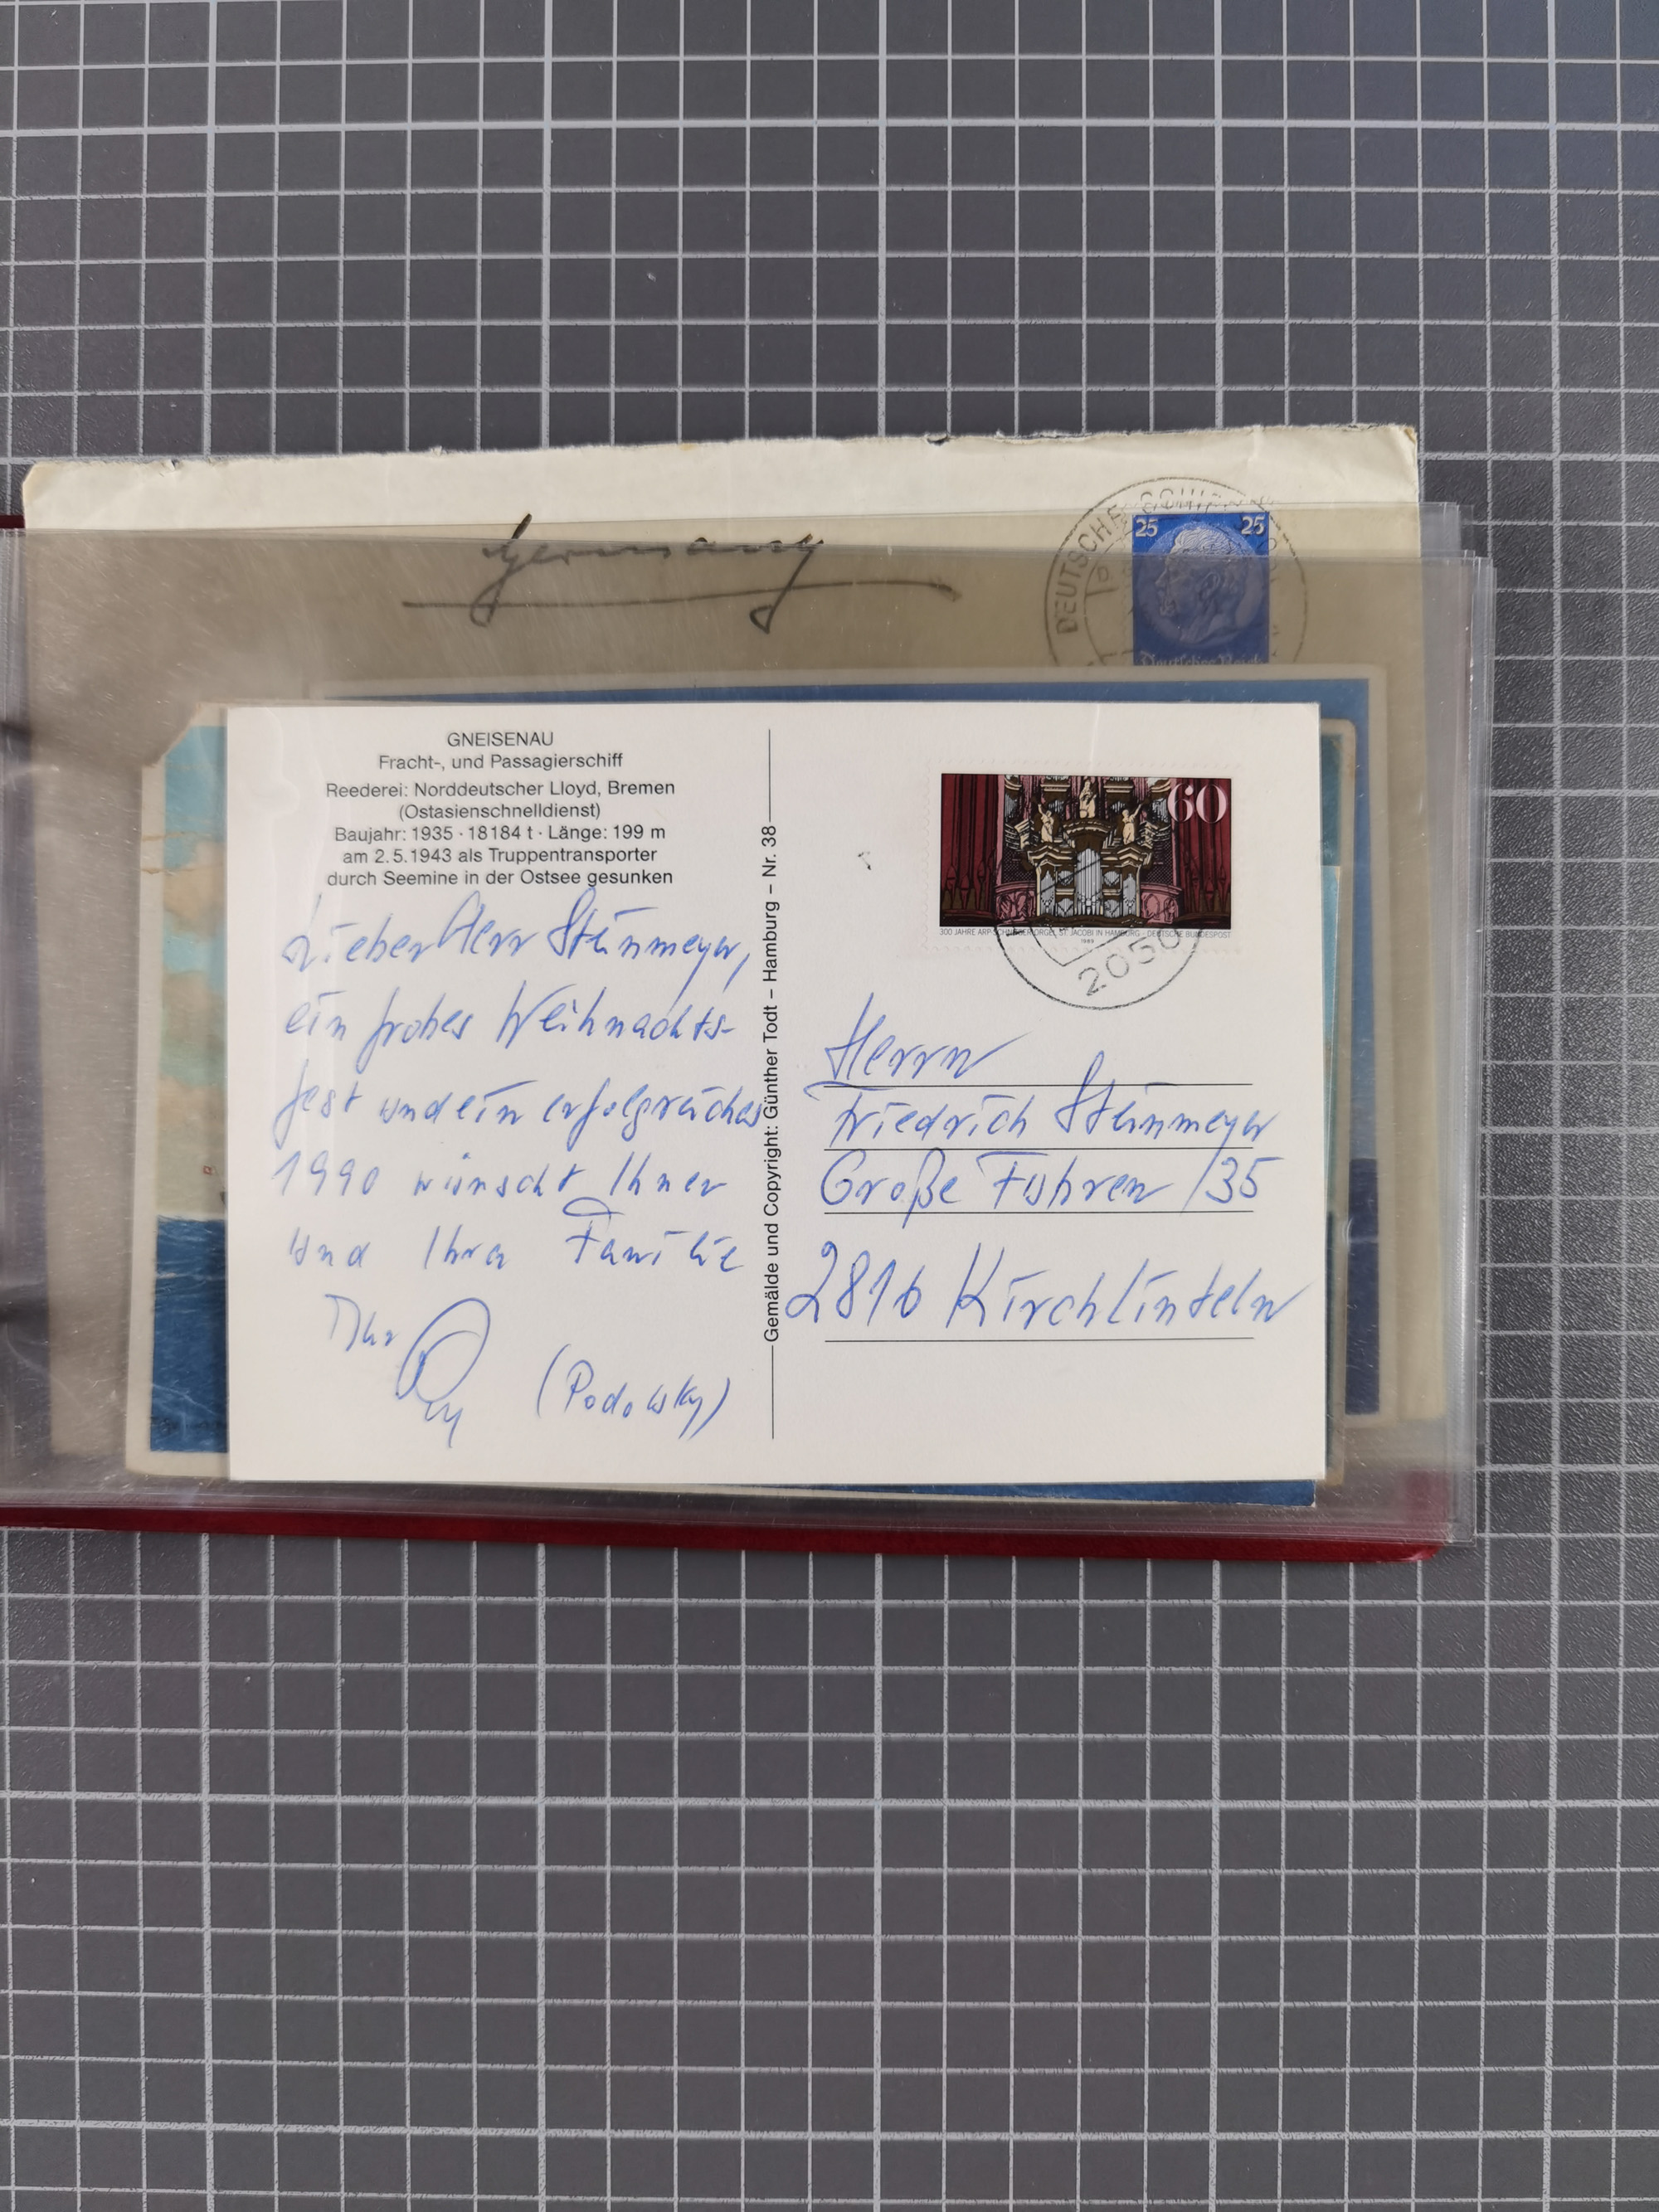 Germany
DEUTSCHE
25 25
Deutsches Reich
GNEISENAU
Fracht-, und Passagierschiff
Reederei: Norddeutscher Lloyd, Bremen
(Ostasienschnelldienst)
Baujahr: 1935 · 18184 t · Länge: 199 m
am 2.5.1943 als Truppentransporter
durch Seemine in der Ostsee gesunken
Lieber Herr Steinmeyer,
ein frohes Weihnachts-
fest und ein erfolgreiches
1990 wünscht Ihnen
und Ihrer Familie
Ihr
(Podowsky)
Gemälde und Copyright: Günther Todt – Hamburg – Nr. 38
60
300 JAHRE ARP-SCHNITGER-ORGEL ST. JACOBI IN HAMBURG - DEUTSCHE BUNDESPOST
1989
2050
Herrn
Friedrich Steinmeyer
Große Fuhren 135
2816 Kirchlinteln